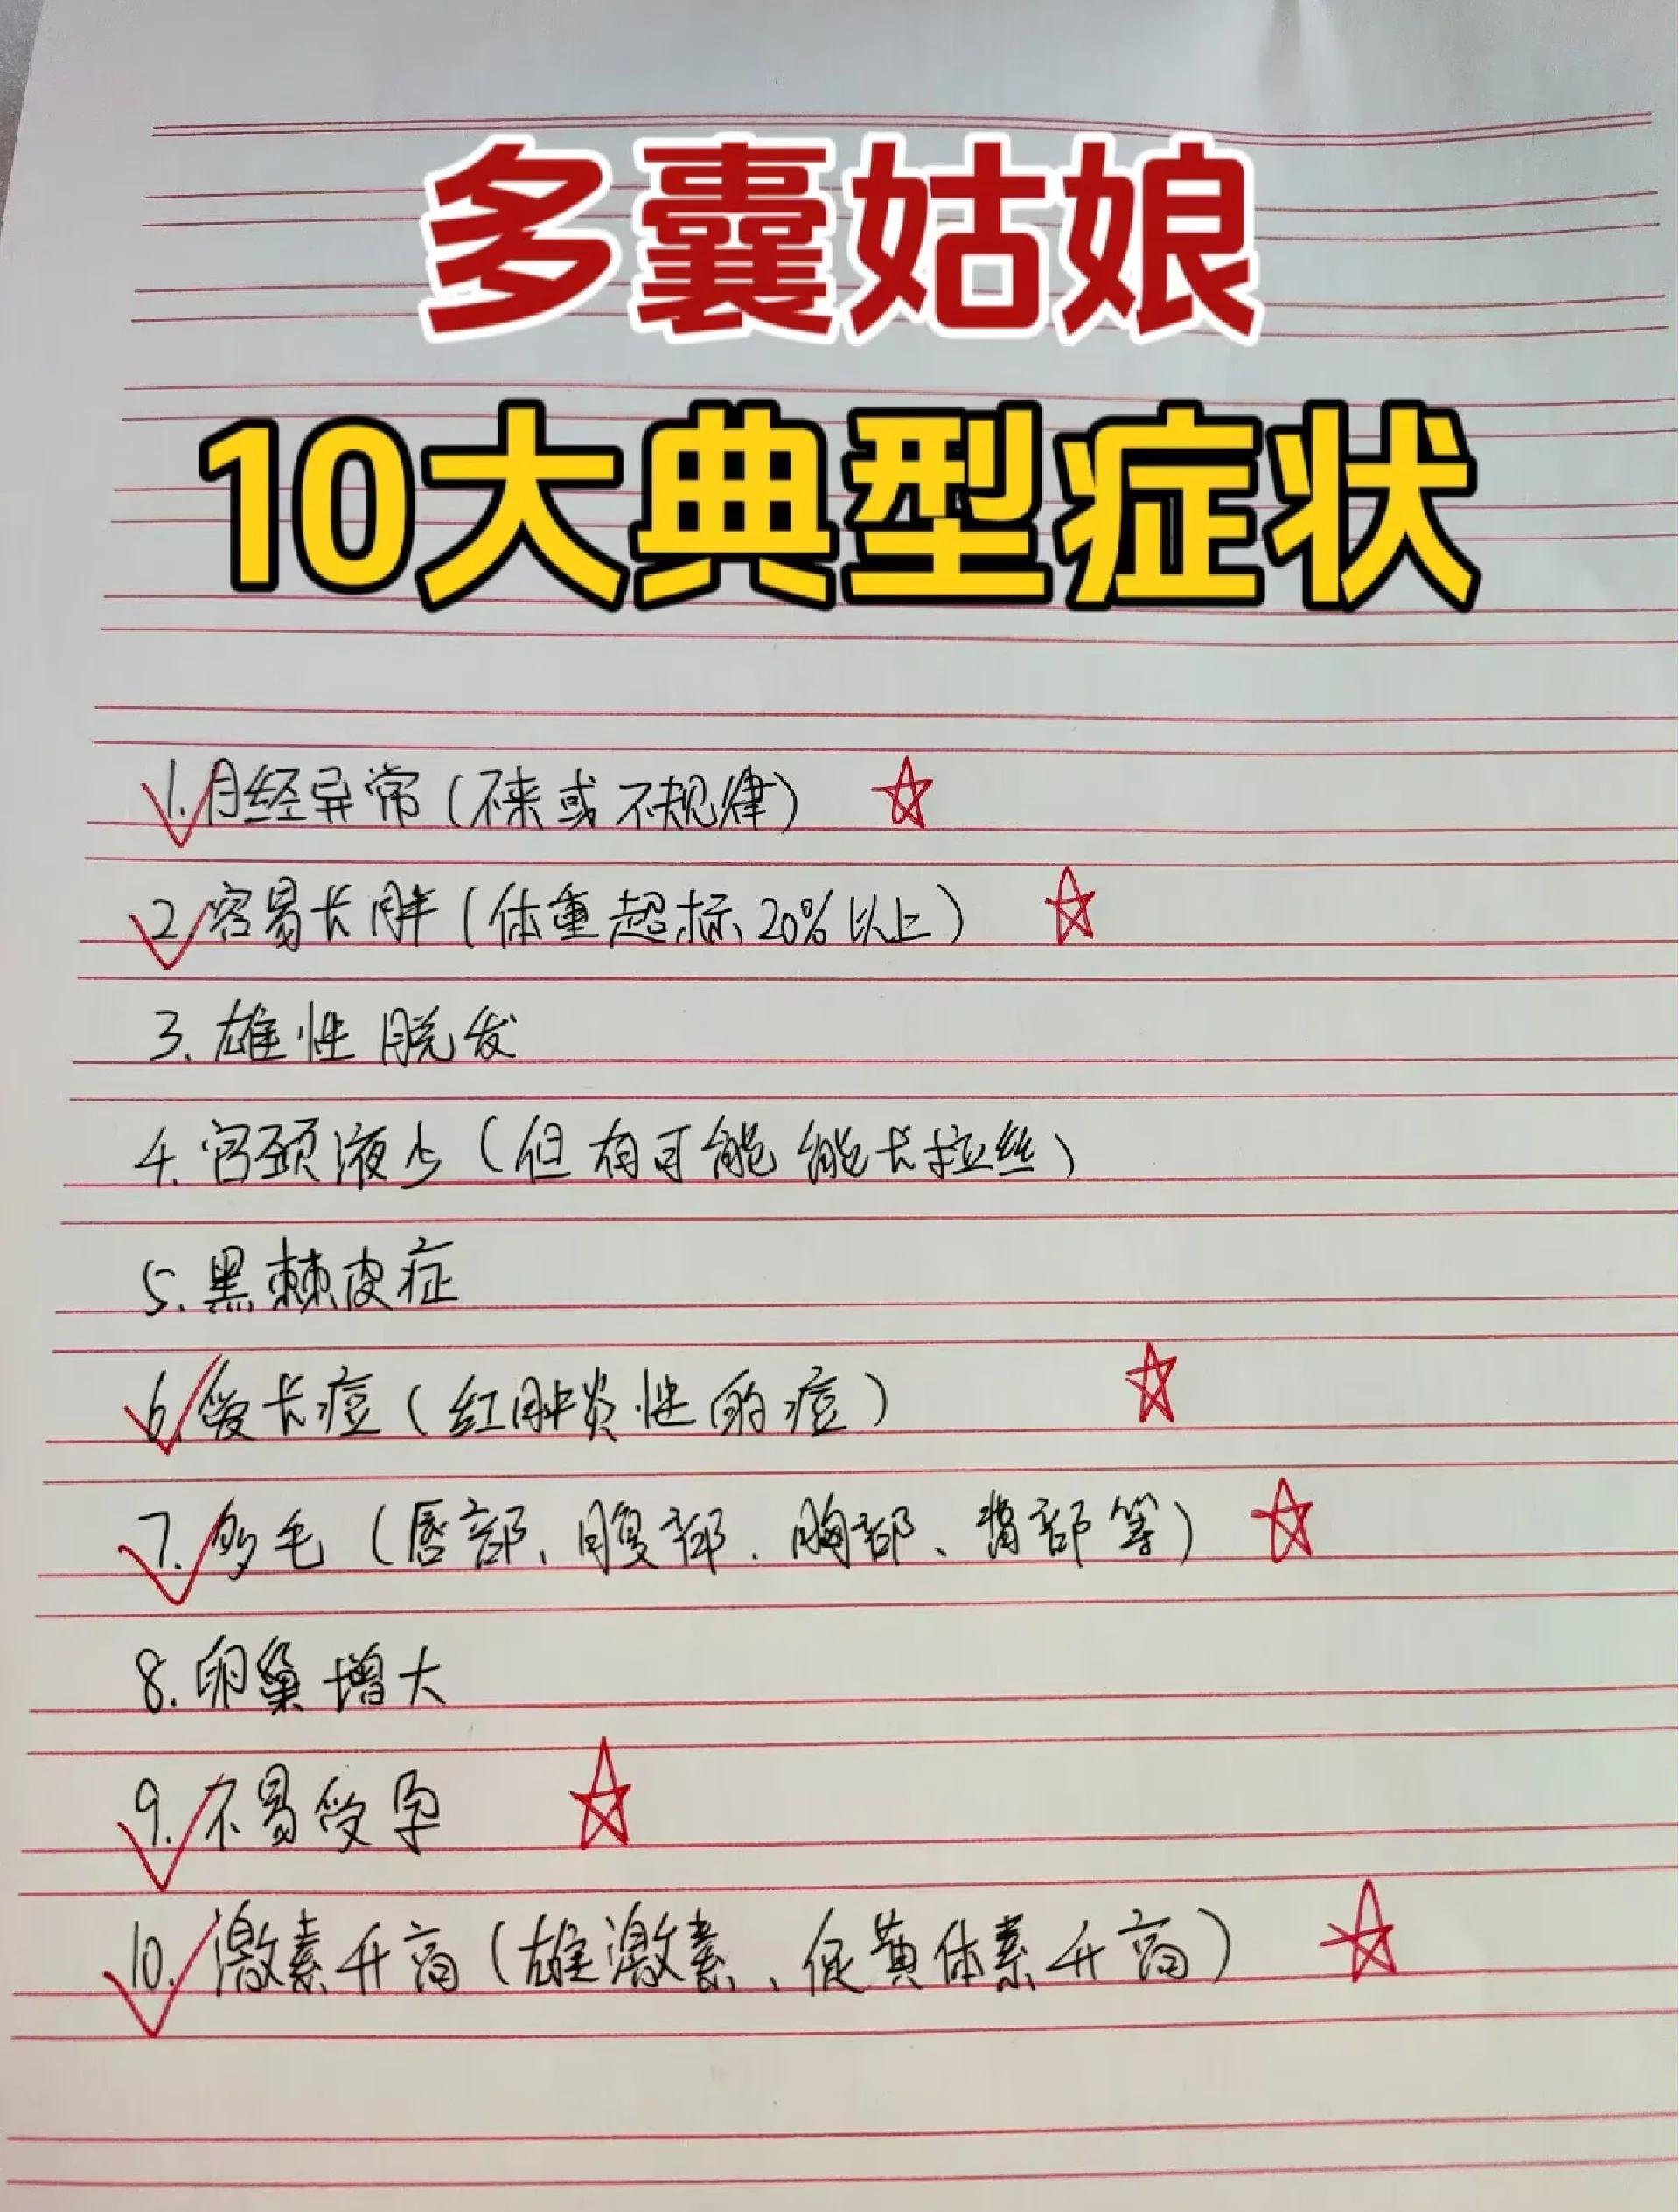 多囊姑娘
10大典型症状
1.月经异常(不来或不规律)
2.容易长胖(体重超标20%以上)
3.雄性脱发
4.宫颈液少(但有可能能长拉丝)
5.黑棘皮症
6.爱长痘(红肿炎性的痘)
7.多毛(唇部、腹部、胸部、背部等)
8.卵巢增大
9.不易受孕
10.激素升高(雄激素、促黄体素升高)